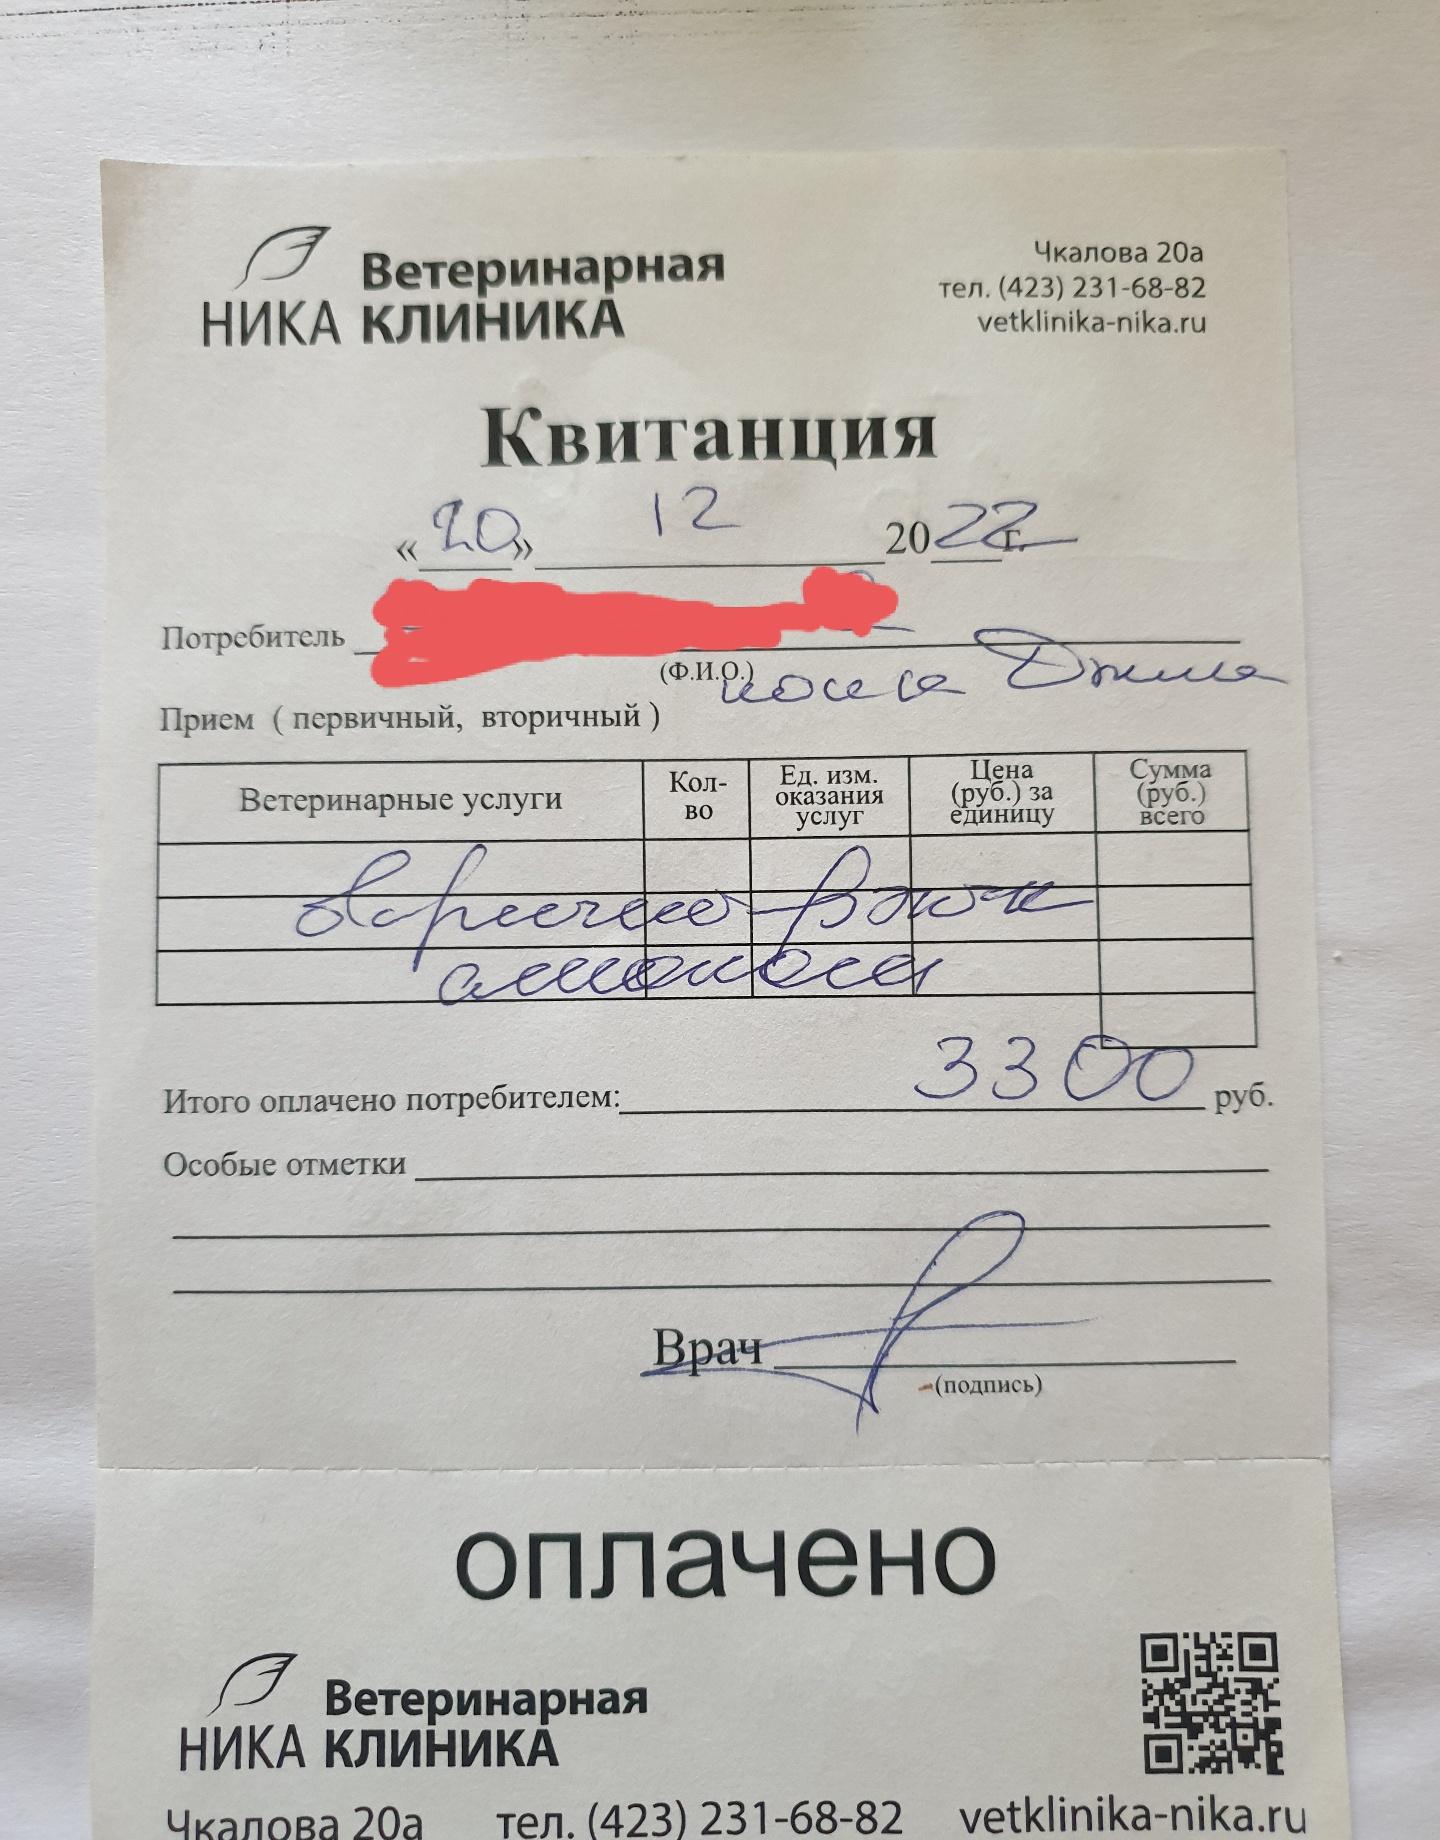 Ветеринарная
НИКА КЛИНИКА
Чкалова 20а
тел. (423) 231-68-82
vetklinika-nika.ru
Квитанция
« 20 » 12 2022 г.
Потребитель
(Ф.И.О.)
кошка
Прием ( первичный, вторичный )
Ветеринарные услуги
Кол-
во
Ед. изм.
оказания
услуг
Цена
(руб.) за
единицу
Сумма
(руб.)
всего
Итого оплачено потребителем: 3300 руб.
Особые отметки
Врач
(подпись)
оплачено
Ветеринарная
НИКА КЛИНИКА
Чкалова 20а тел. (423) 231-68-82 vetklinika-nika.ru